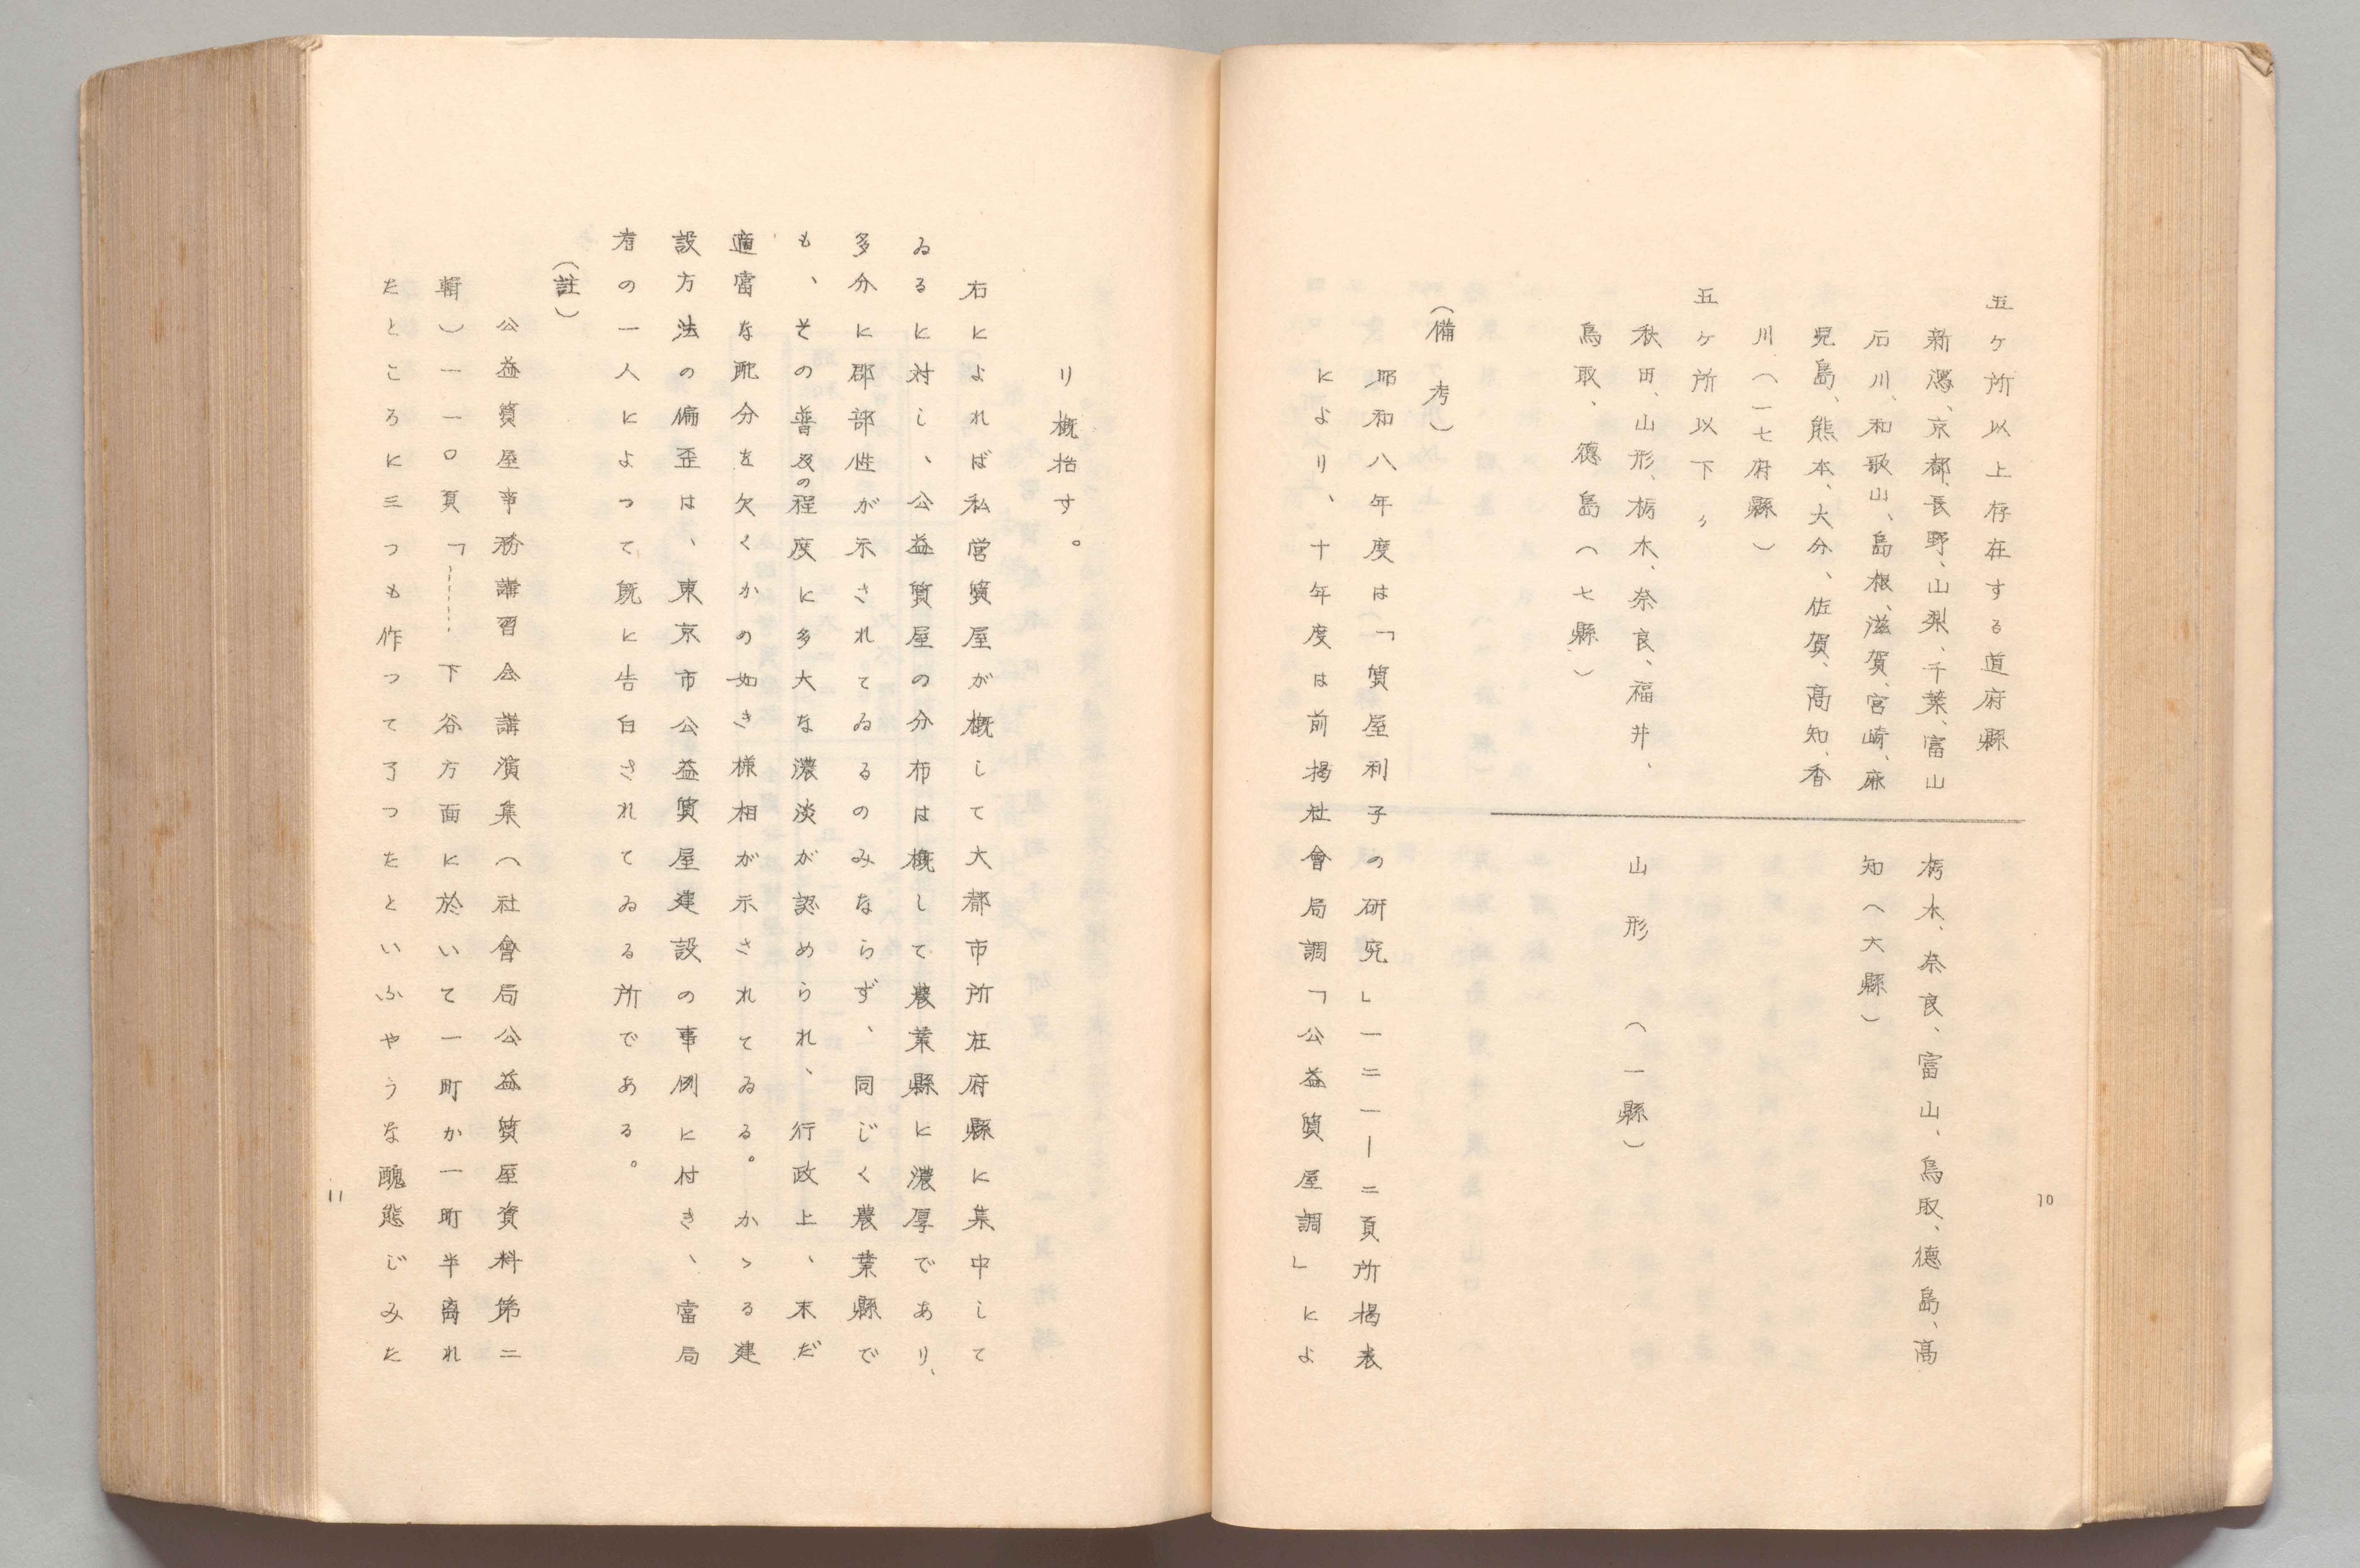 五ケ所以上存在する道府縣
新潟、京都、長野、山梨、千葉、富山
石川、和歌山、島根、滋賀、宮崎、麻
児島、熊本、大分、佐賀、高知、香
川（一七府縣）
五ケ所以下〃
秋田、山形、栃木、奈良、福井、
鳥取、徳島（七縣）
栃木、奈良、富山、鳥取、徳島、高
知（六縣）
山形（一縣）
（備考）
昭和八年度は「質屋利子の研究」一二一ー二頁所掲表
により、十年度は前掲社會局調「公益質屋調」によ
10
り概括す。
右によれば私営質屋が概して大都市所在府縣に集中して
ゐるに対し、公益質屋の分布は概して農業縣に濃厚であり、
多分に郡部性が示されてゐるのみならず、同じく農業縣で
も、その普及の程度に多大な濃淡が認められ、行政上、末だ
適當な配分を欠くかの如き様相が示されてゐる。かゝる建
設方法の偏歪は、東京市公益質屋建設の事例に付き、當局
者の一人によつて既に告白されてゐる所である。
（註）
公益質屋事務講習会講演集（社會局公益質屋資料第二
輯）一一〇頁「……下谷方面に於いて一町か一町半離れ
たところに三つも作つて了つたといふやうな醜態じみた
11